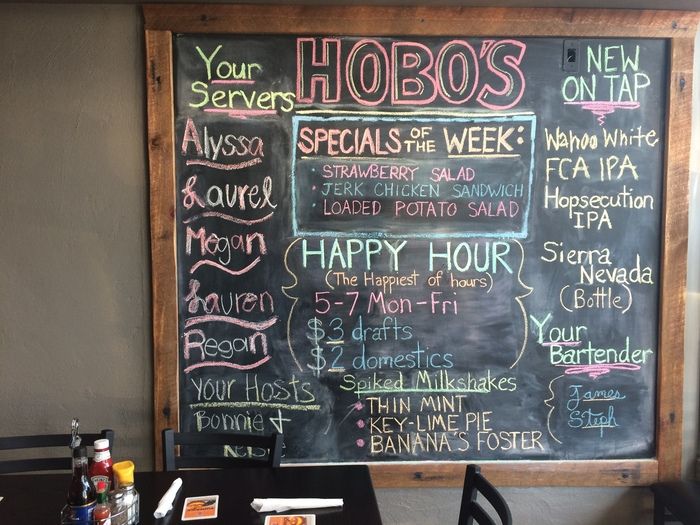 Your
Servers
Alyssa
Laurel
Megan
Lauren
Regan
Your Hosts
Bonnie +
HOBO'S
SPECIALS OF THE WEEK:
· STRAWBERRY SALAD
· JERK CHICKEN SANDWICH
· LOADED POTATO SALAD
HAPPY HOUR
(The Happiest of hours)
5-7 Mon-Fri
$3 drafts
$2 domestics
Spiked Milkshakes
• THIN MINT
• KEY-LIME PIE
• BANANA'S FOSTER
NEW
ON TAP
Wahoo White
FCA IPA
Hopsecution
IPA
Sierra
Nevada
(Bottle)
Your
Bartender
James
Steph